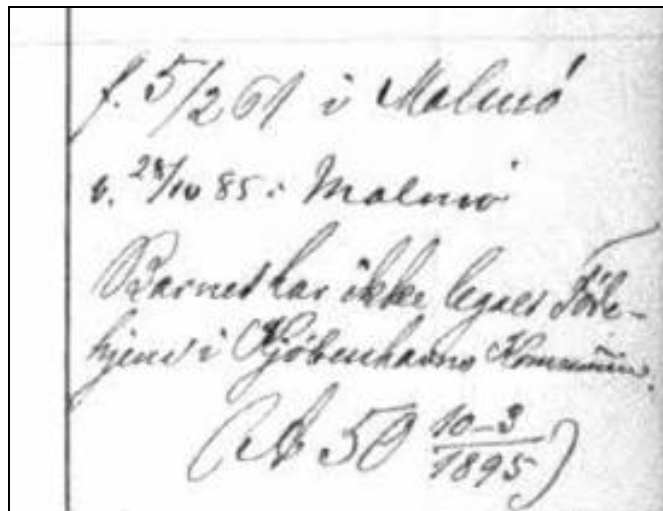 f. 5/2 61 i Malmö
v. 28/10 85 i Malmö
Barnet har ikke legalt Föde-
hjem i Kjøbenhavns Kommune.
(A 50 10-3/1895)